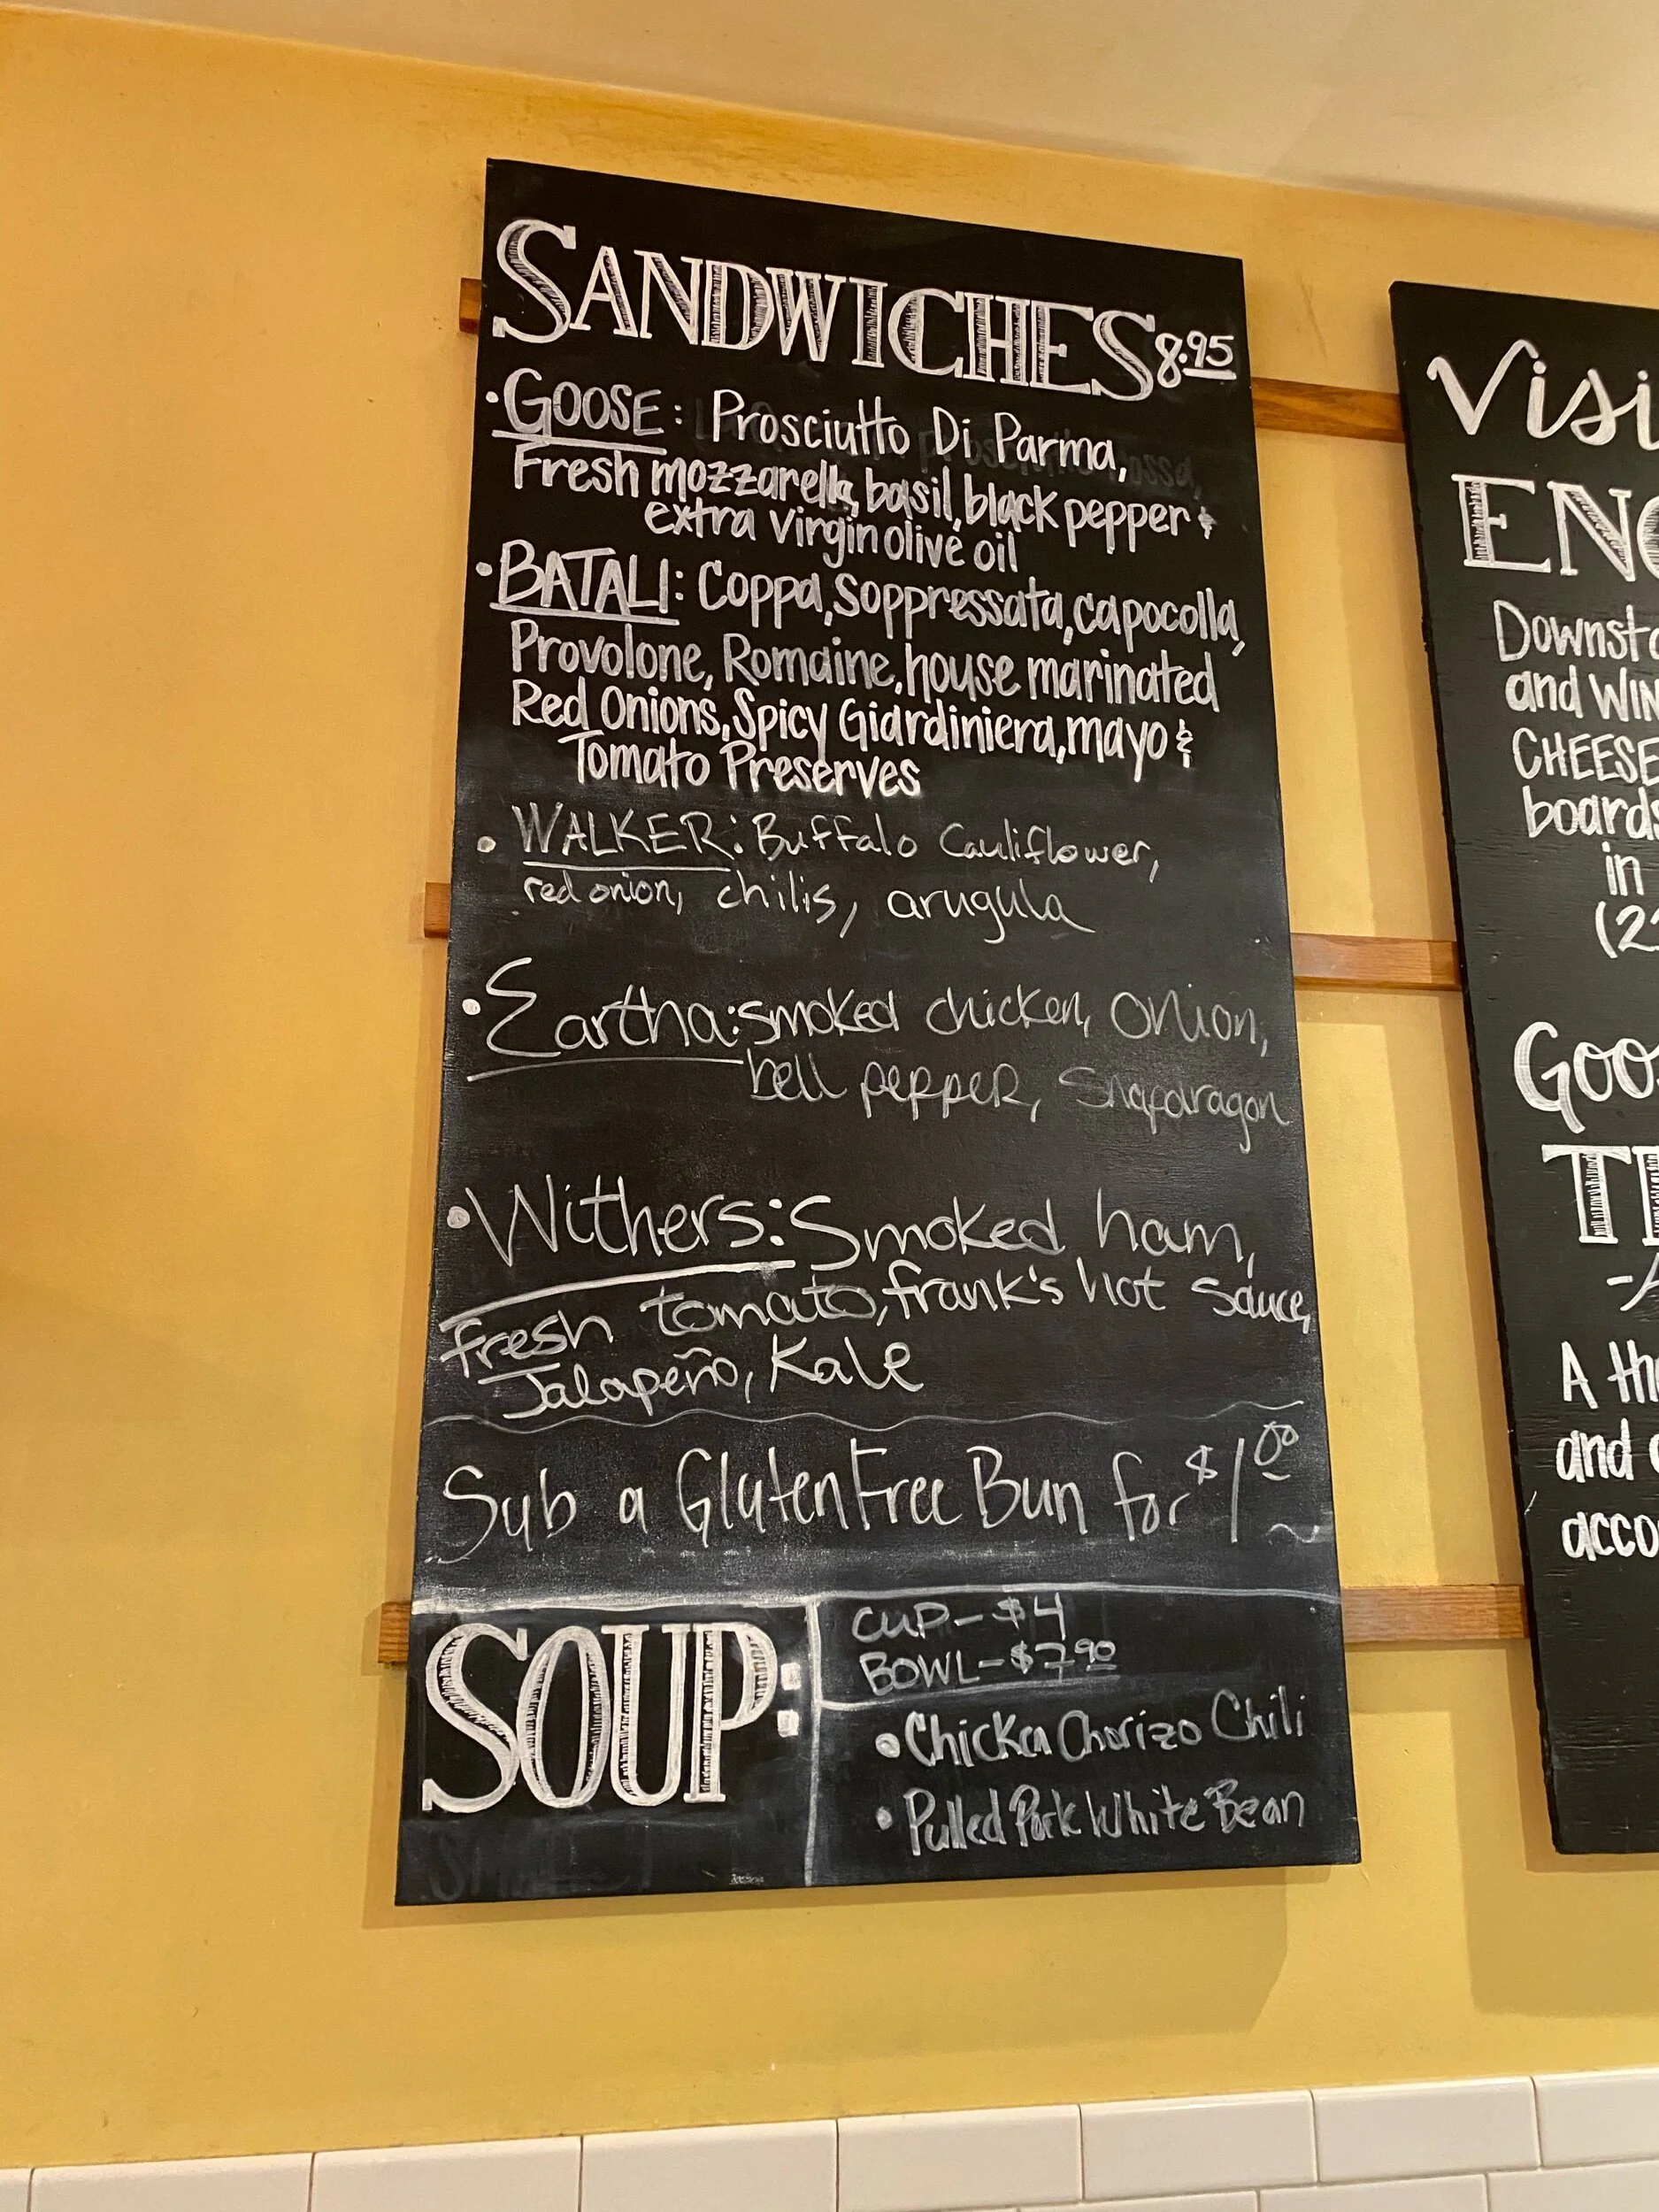 SANDWICHES 8.95
• GOOSE: Prosciutto Di Parma,
Fresh mozzarella, basil, black pepper &
extra virgin olive oil
• BATALI: Coppa, Soppressata, capocolla,
Provolone, Romaine, house marinated
Red Onions, Spicy Giardiniera, mayo &
Tomato Preserves
• WALKER: Buffalo Cauliflower,
red onion, chilis, arugula
• Eartha: smoked chicken, onion,
bell pepper, Snaparagon
• Withers: Smoked ham,
Fresh tomato, frank's hot sauce,
Jalapeño, Kale
Sub a Gluten Free Bun for $1.00
SOUP:
CUP - $4
BOWL - $7.90
• Chicken Chorizo Chili
• Pulled Pork White Bean
Visi
ENO
Downsta
and WIN
CHEESE
boards
in
(2
Goos
T
A th
and
acco